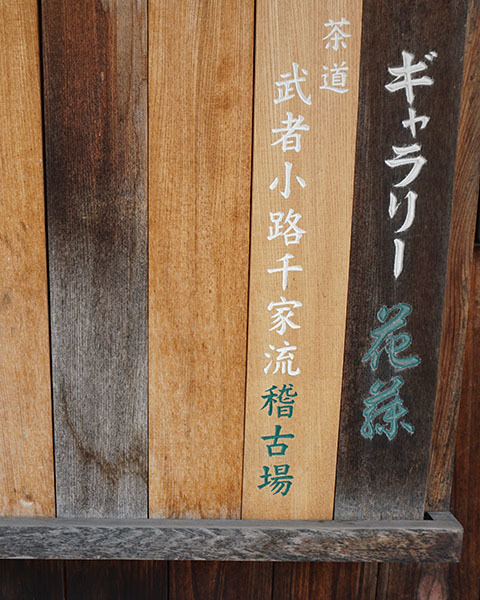 ギャラリー 花蘇
茶道
武者小路千家流稽古場